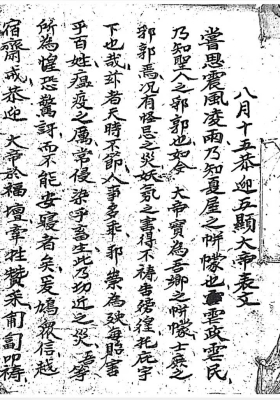 八月十五恭迎五顯大帝表文
嘗思震風凌雨乃知夏屋之帡幪也虐政虐民
乃知聖人之郛郭也如今　大帝實為吾鄉之帡幪士庶之
郛郭焉況有怪忌之災妖氛之害得不禱告徬徨托庇宇
下也哉玆者天時不節人事多乖邪祟為殃每貽害
乎百姓瘟疫之厲常侵染乎畜生此乃切近之災吾等
所為惶恐驚訝而不能安寢者矣爰鳩眾信越
宿齋戒恭迎　大帝於福壇牽牲贊采匍匐叩禱